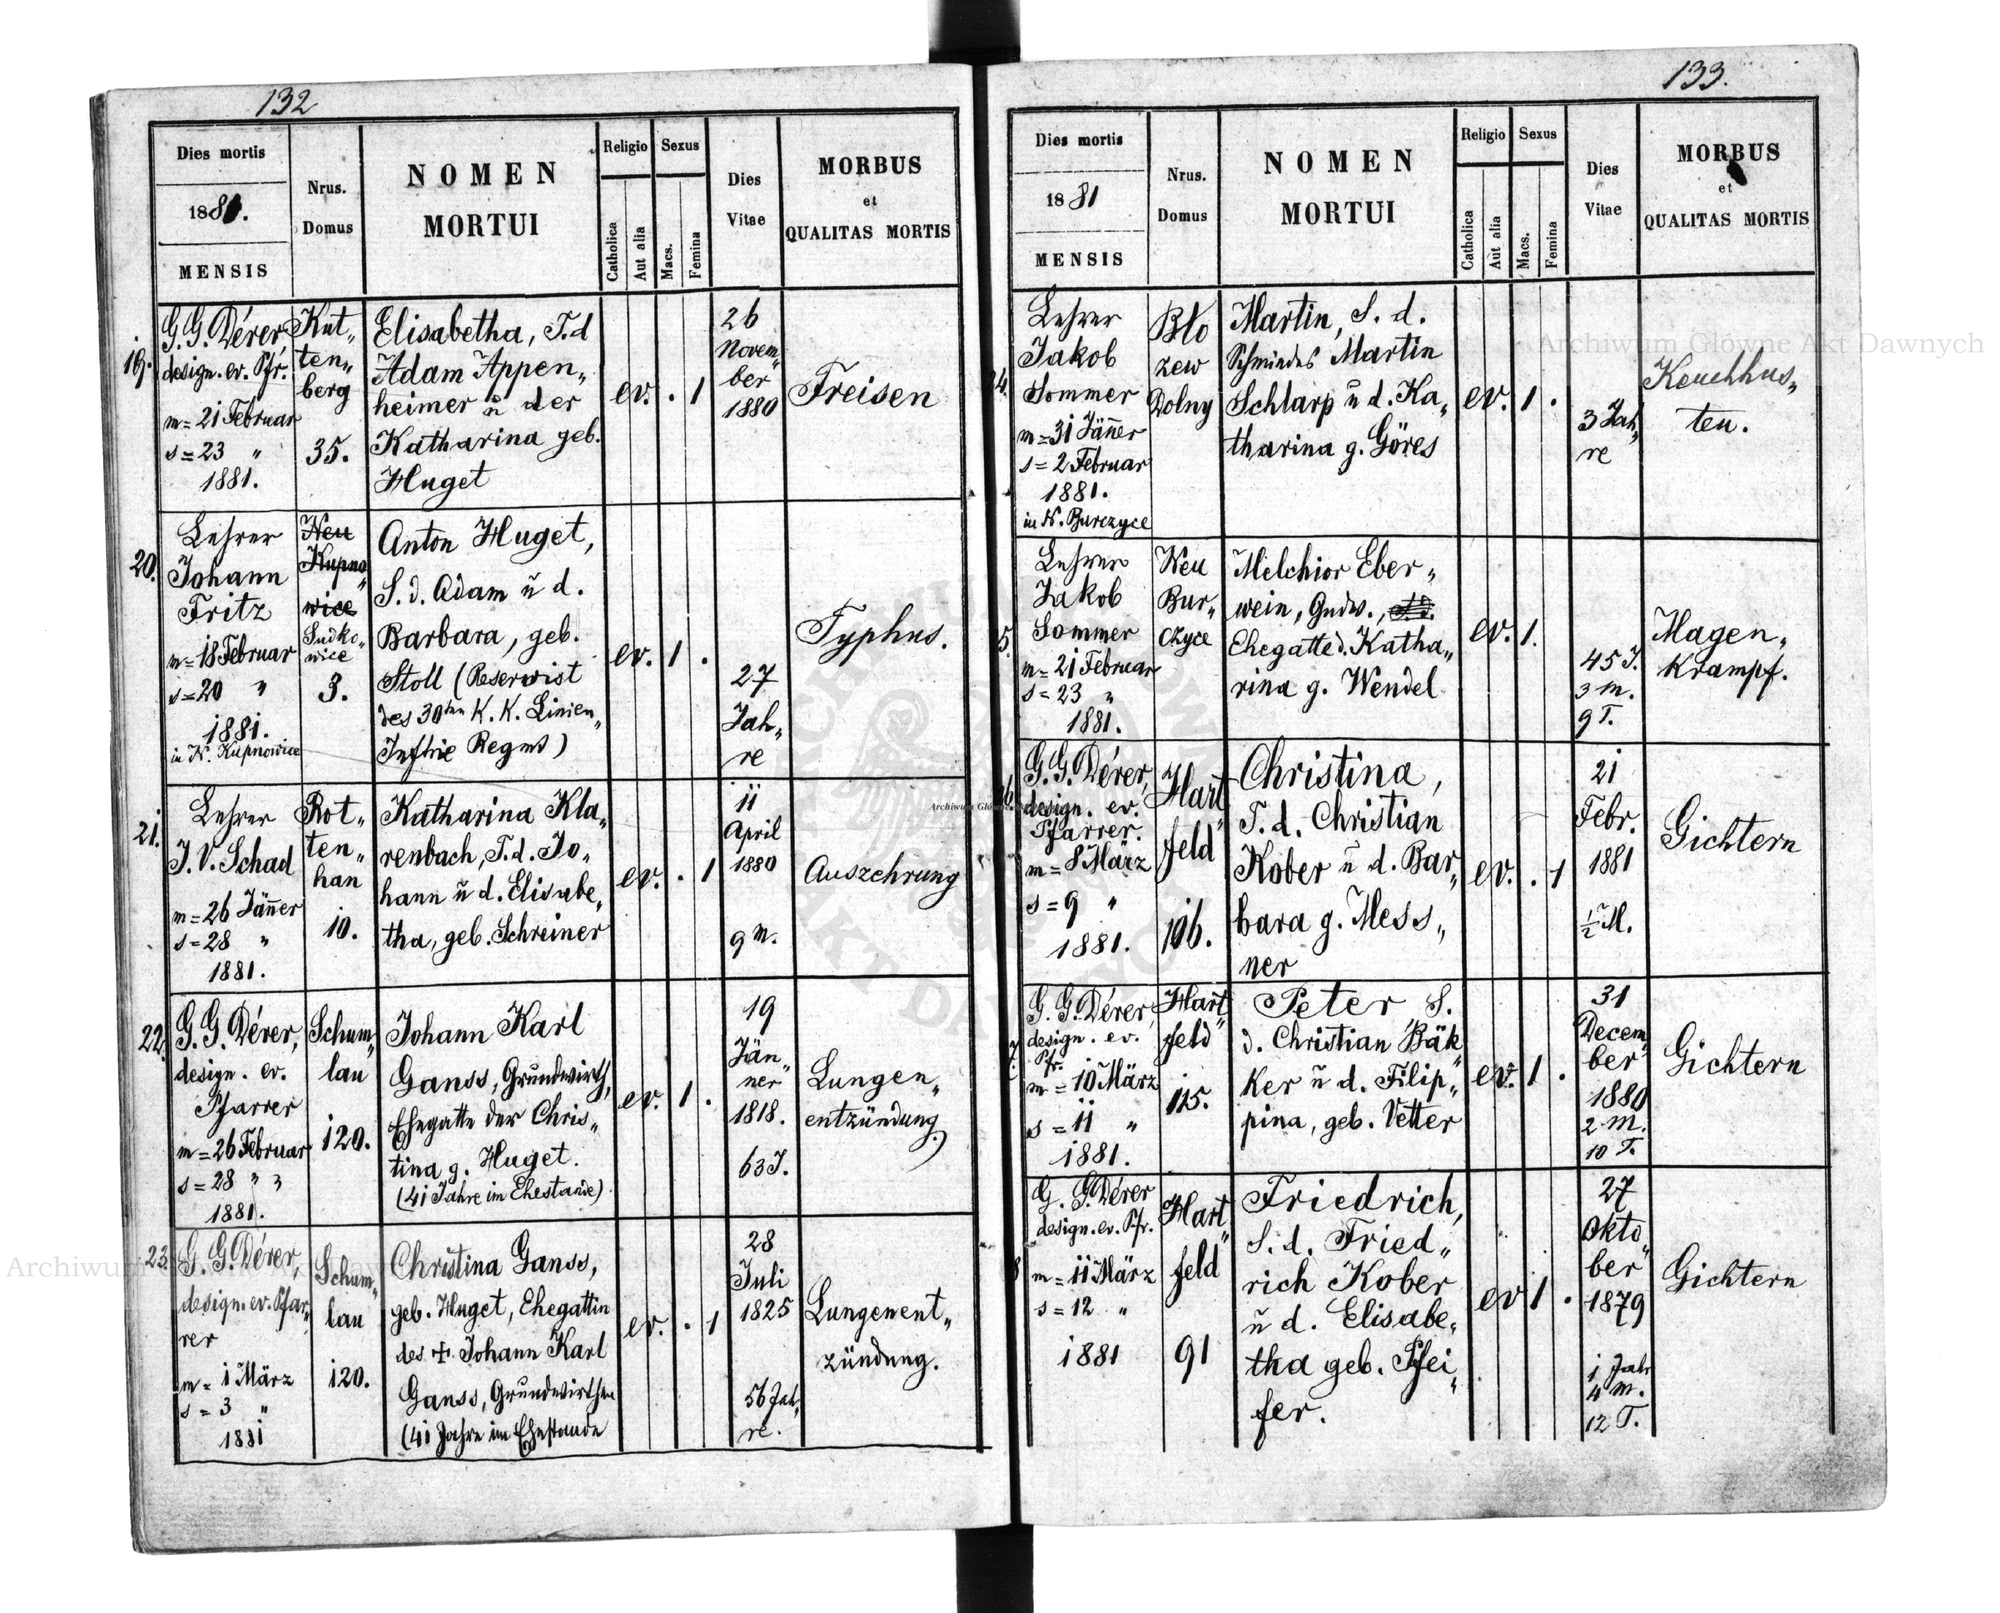 132
Dies mortis
1881.
MENSIS
Nrus.
Domus
NOMEN
MORTUI
Religio
Catholica
Aut alia
Sexus
Macs.
Femina
Dies
Vitae
MORBUS
et
QUALITAS MORTIS
19.
G. G. Dérer
design. ev. Pfr.
m = 21 Februar
s = 23 "
1881.
Kut„
ten„
berg
35.
Elisabetha, T. d
Adam Appen„
heimer u der
Katharina geb.
Huget
ev. . 1
26
Novem„
ber
1880
Freisen
20.
Lehrer
Johann
Fritz
m = 18 Februar
s = 20 "
1881.
in N. Kupnowice
Neu
Kupno„
wice
Sudko„
wice
3.
Anton Huget,
S. d. Adam u d.
Barbara, geb.
Stoll (Reservist
des 30ten K. K. Linien„
Inftrie Regms)
ev. 1 .
27
Jah„
re
Typhus.
21.
Lehrer
J. V. Schad
m = 26 Jänner
s = 28 "
1881.
Rot„
ten„
han
10.
Katharina Kla„
renbach, T. d. Jo„
hann u d. Elisabe„
tha, geb. Schreiner
ev. . 1
11
April
1880
9 M.
Auszehrung
22.
G. G. Dérer,
design. ev.
Pfarrer
m = 26 Februar
s = 28 " "
1881.
Schum„
lau
120.
Johann Karl
Ganss, Grundwirth,
Ehegatte der Chris„
tina g. Huget.
(41 Jahre im Ehestande)
ev. 1 .
19
Jän„
ner
1818.
63 J.
Lungen„
entzündung
23.
G. G. Dérer,
design. ev. Pfar„
rer
m = 1 März
s = 3 "
1881
Schum„
lau
120.
Christina Ganss,
geb. Huget, Ehegattin
des + Johann Karl
Ganss, Grundwirthen
(41 Jahre im Ehestande
ev. . 1
28
Juli
1825
56 Jah„
re.
Lungenent„
zündung.
133.
Dies mortis
1881
MENSIS
Nrus.
Domus
NOMEN
MORTUI
Religio
Catholica
Aut alia
Sexus
Macs.
Femina
Dies
Vitae
MORBUS
et
QUALITAS MORTIS
4.
Lehrer
Jakob
Sommer
m = 31 Jänner
s = 2 Februar
1881.
in N. Burczyce
Blo
zew
Dolny
Martin, S. d.
Schmiedes Martin
Schlarp u d. Ka„
tharina g. Göres
ev. 1 .
3 Jah„
re
Keuchhus„
ten.
5.
Lehrer
Jakob
Sommer
m = 21 Februar
s = 23 "
1881.
Neu
Bur„
czyce
Melchior Eber„
wein, Gndw.,
Ehegatte d. Katha„
rina g. Wendel
ev. 1.
45 J.
3 M.
9 T.
Magen„
krampf.
6
G. G. Dérer,
design. ev.
Pfarrer.
m = 8 März
s = 9 "
1881.
Hart„
feld
106.
Christina,
T. d. Christian
Kober u d. Bar„
bara g. Mess„
ner
ev. . 1
21
Febr.
1881
1/2 M.
Gichtern
7.
G. G. Dérer,
design. ev.
Pfr.
m = 10 März
s = 11 "
1881.
Hart„
feld
115.
Peter, S.
d. Christian Bäk„
ker u d. Filip„
pina, geb. Vetter
ev. 1 .
31
Decem„
ber
1880
2 M.
10 T.
Gichtern
8
G. G. Dérer
design. ev. Pfr.
m = 11 März
s = 12 "
1881
Hart„
feld
91
Friedrich,
S. d. Fried„
rich Kober
u d. Elisabe„
tha geb. Pfei„
fer.
ev 1 .
27
Okto„
ber
1879
1 Jahr
4 M.
12 T.
Gichtern
Archiwum Główne Akt Dawnych
Archiwum Główne Akt Dawnych